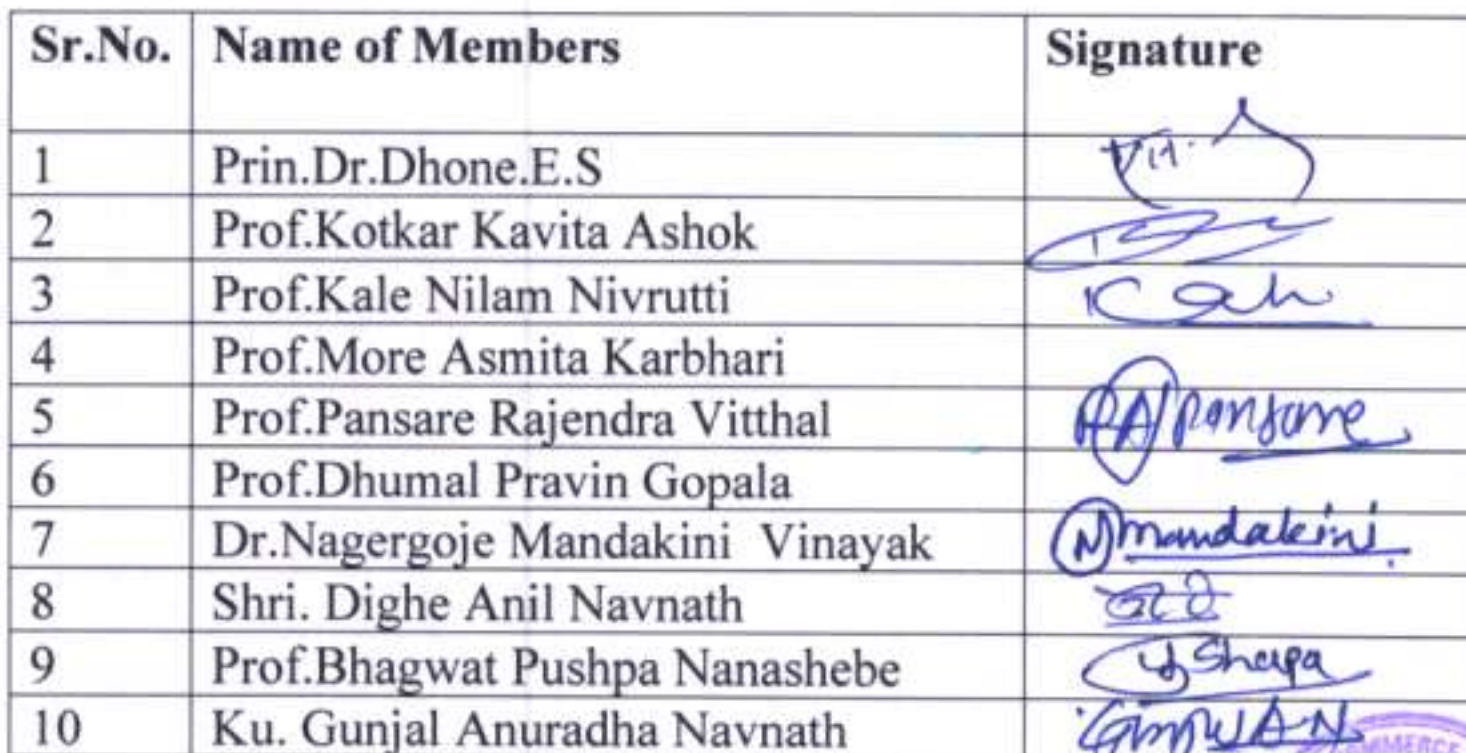 Sr.No. Name of Members Signature
1 Prin.Dr.Dhone.E.S
2 Prof.Kotkar Kavita Ashok
3 Prof.Kale Nilam Nivrutti
4 Prof.More Asmita Karbhari
5 Prof.Pansare Rajendra Vitthal Pansare
6 Prof.Dhumal Pravin Gopala
7 Dr.Nagergoje Mandakini Vinayak N mandakini
8 Shri. Dighe Anil Navnath
9 Prof.Bhagwat Pushpa Nanashebe
10 Ku. Gunjal Anuradha Navnath